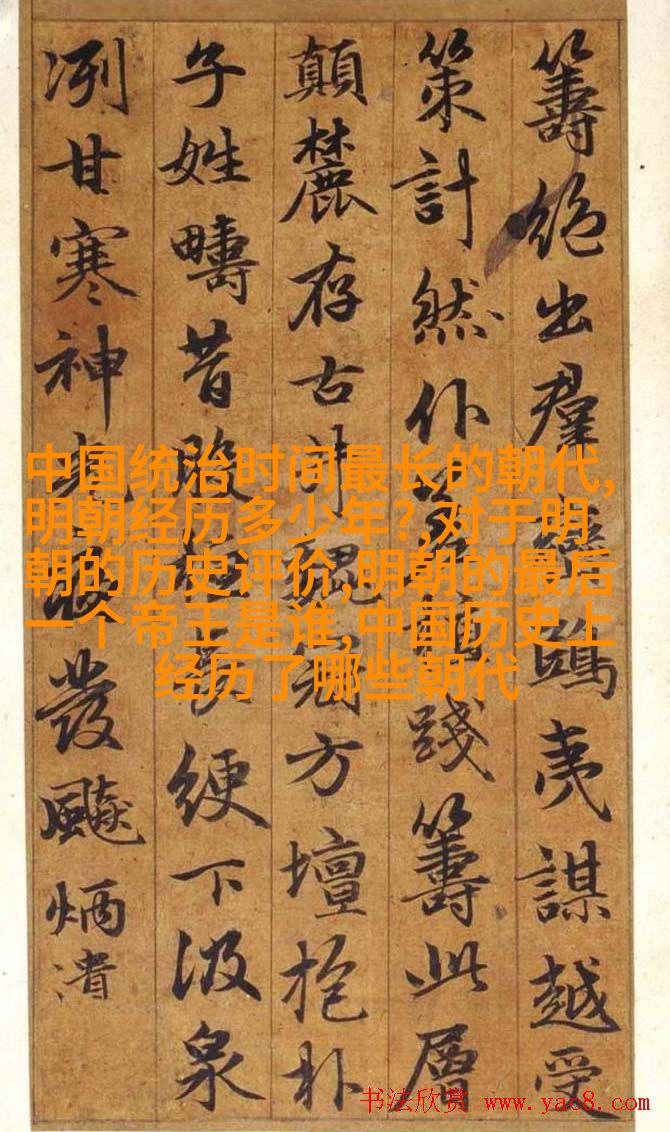 籌絕出群鴟夷謀越受
策計然仆踐籌此層
顛麓存古井方壇抱朴
子姓疇昔綆下汲泉
冽甘寒神發飈炳
中国统治时间最长的朝代,
明朝经历多少年?,对于明
朝的历史评价,明朝的最后
一个帝王是谁,中国历史上
经历了哪些朝代
书法欣赏 www.yac8.com